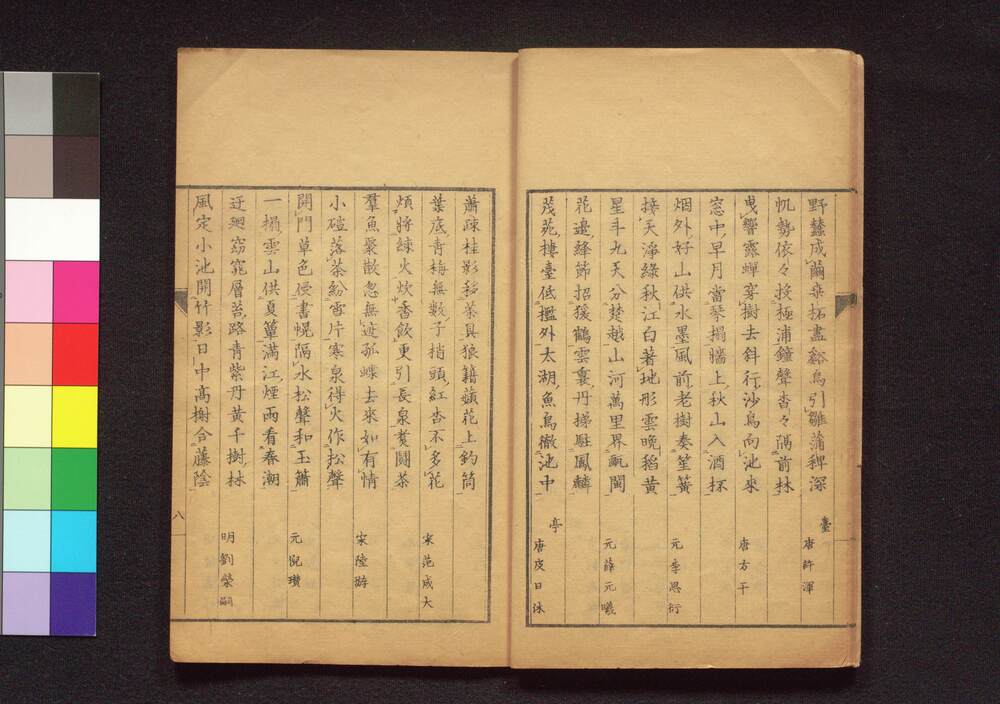 野蠶成繭桑柘盡谿鳥引雛蒲稗深 臺 唐許渾
帆勢依々投極浦鐘聲杳々隔前林
曳響露蟬穿樹去斜行沙鳥向池來 唐方干
窓中早月當琴榻牆上秋山入酒杯
烟外好山供水墨風前老樹奏笙簧 元李思衍
接天淨綠秋江白著地彤雲晚稻黃
星斗九天分楚越山河萬里界甌閩 元薛元曦
花邊絳節招猿鶴雲裏丹梯駐鳳麟
茂苑樓臺低檻外太湖魚鳥徹池中 亭 唐皮日休
蕭疎桂影移茶具狼籍蘋花上釣筒
葉底青梅無數子梢頭紅杏不多花 宋范成大
煩將練火炊香飲更引長泉煑鬪茶
羣魚聚散忽無迹孤蝶去來如有情 宋陸游
小磑落茶紛雪片寒泉得火作松聲
開門草色侵書幌隔水松聲和玉簫 元倪瓚
一榻雲山供夏簟滿江煙雨看春潮
迂廻窈窕層苔路青紫丹黃千樹林 明劉榮嗣
風定小池開竹影日中高樹合藤陰
八